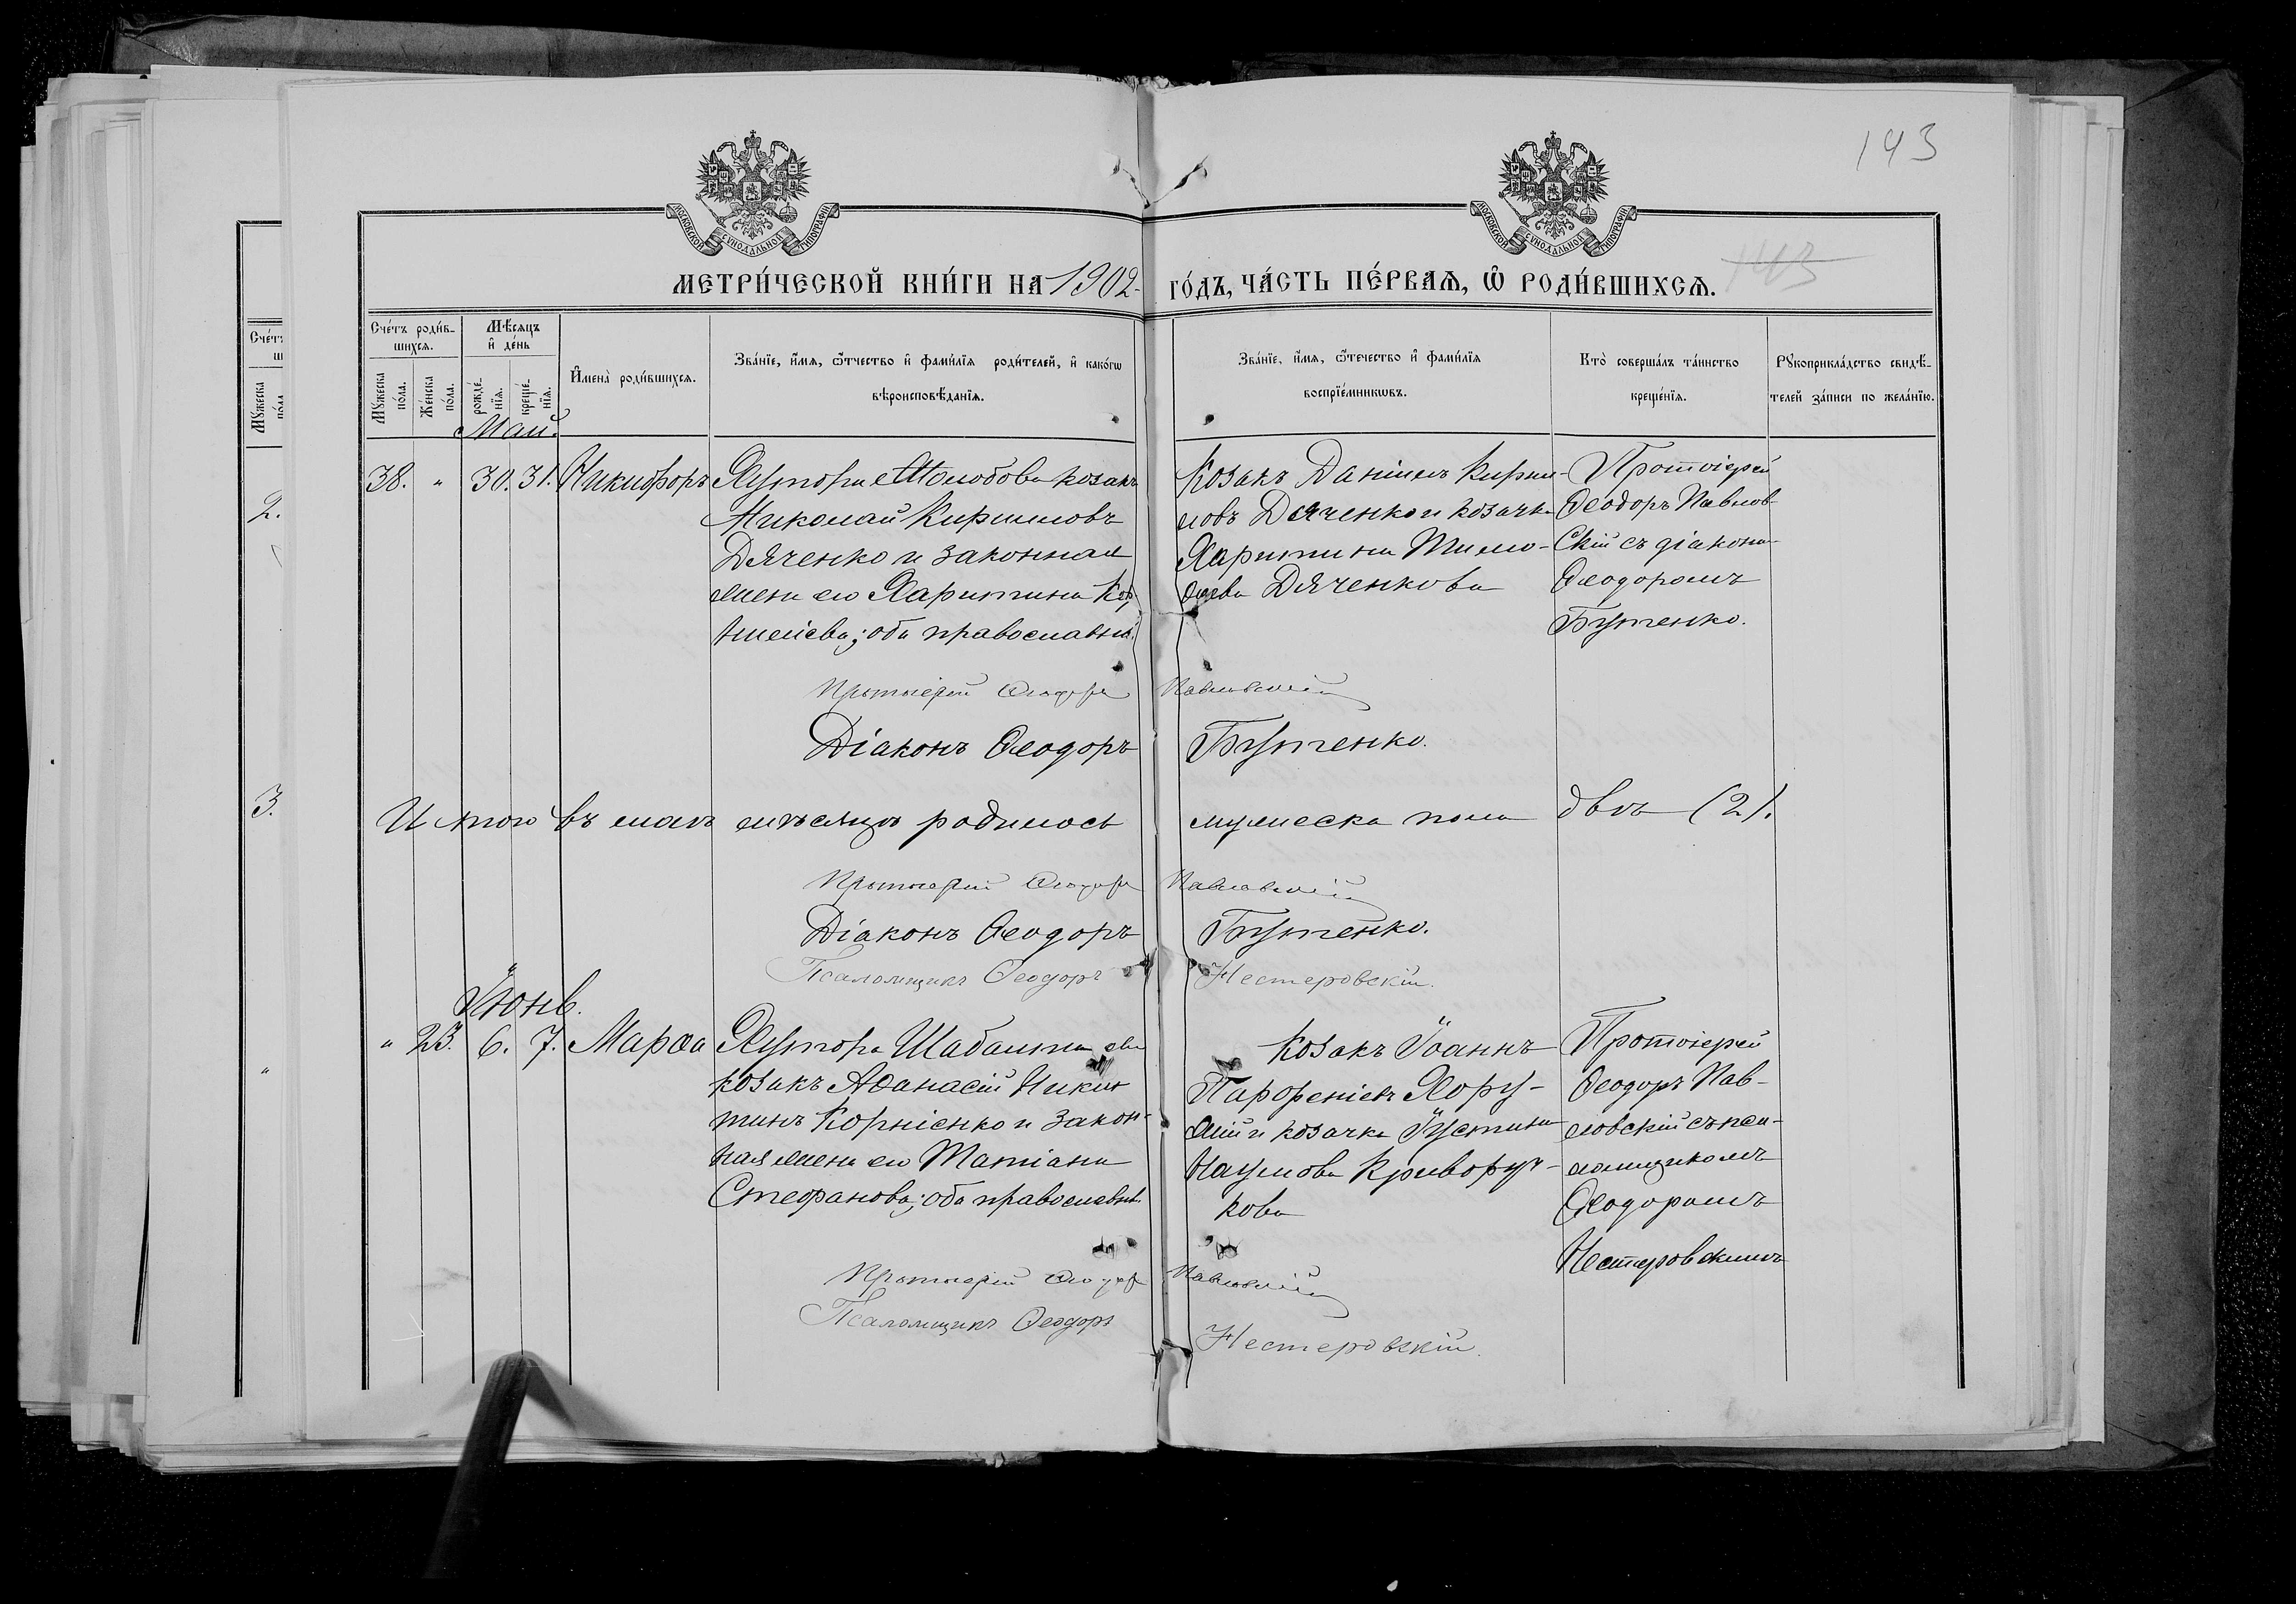 143
МОСКОВСКОЙ СѴНОДАЛЬНОЙ ТИПОГРАФІИ
МОСКОВСКОЙ СѴНОДАЛЬНОЙ ТИПОГРАФІИ
МЕТРИ́ЧЕСКОЙ КНИ́ГИ НА 1902 ГО́ДЪ, ЧА́СТЬ ПЕ́РВАѦ, Ѡ҆ РОДИ́ВШИХСѦ.
143
Сче́тъ роди́в-
шихсѧ.
Мѣ́сѧцъ
и҆ де́нь
Мꙋжеска
по́ла.
Же́нска
по́ла.
рожде́-
нїѧ.
креще́-
нїѧ.
И҆мена̀ роди́вшихсѧ.
Зва́нїе, и҆́мѧ, ѻ҆́тчество и҆ фами́лїѧ роди́телей, и҆ како́гѡ
вѣроисповѣ́данїѧ.
Зва́нїе, и҆́мѧ, ѻ҆те́чество и҆ фами́лїѧ
воспрїе́мникѡвъ.
Кто̀ соверша́лъ та́инство
креще́нїѧ.
Рꙋкоприкла́дство свидѣ́-
телей за́писи по жела́нїю.
Май.
38. " 30. 31. Никифоръ
Хутора козакъ
Николай Кирилловъ
Дяченко и законная
жена его Харитина
оба православны.
Козакъ Даніилъ Кирил-
ловъ Дяченко и козачка
Харитина Тимо-
ѳеева Дяченкова
Протоіерей
Ѳеодоръ Павлов-
скій съ діакономъ
Ѳеодоромъ
Бутенко.
Протоіерей Ѳеодоръ Павловскій
Діаконъ Ѳеодоръ Бутенко.
Итого въ маѣ мѣсяцѣ родилось мужеска пола два (2).
Протоіерей Ѳеодоръ Павловскій
Діаконъ Ѳеодоръ Бутенко.
Псаломщикъ Ѳеодоръ Нестеровскій.
Іюнь.
" 23. 6. 7. Марѳа
Хутора
козакъ Аѳанасій Ники-
тинъ Корніенко и закон-
ная жена его Татіана
Стефанова; оба православны.
Козакъ Іоаннъ
Парѳеніевъ Хору-
жій и козачка Іустина
Наумова Криворуч-
кова
Протоіерей
Ѳеодоръ Пав-
ловскій съ пса-
ломщикомъ
Ѳеодоромъ
Нестеровскимъ
Протоіерей Ѳеодоръ Павловскій
Псаломщикъ Ѳеодоръ Нестеровскій.
Сче́тъ
Мꙋжеска
по́ла
2.
3.
"